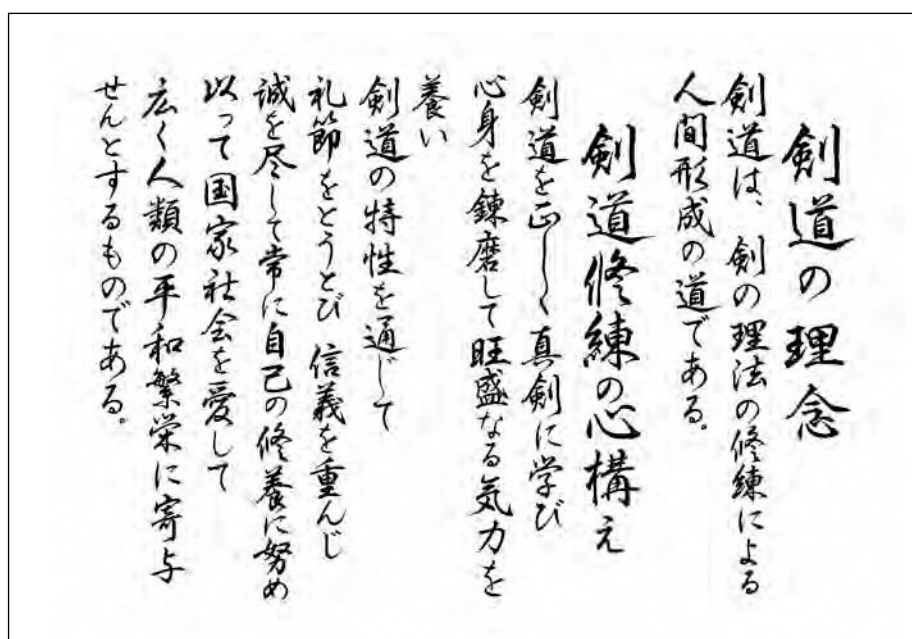 剣道の理念
剣道は、剣の理法の修練による
人間形成の道である。
剣道修練の心構え
剣道を正しく真剣に学び
心身を錬磨して旺盛なる気力を
養い
剣道の特性を通じて
礼節をとうとび 信義を重んじ
誠を尽して常に自己の修養に努め
以って国家社会を愛して
広く人類の平和繁栄に寄与
せんとするものである。